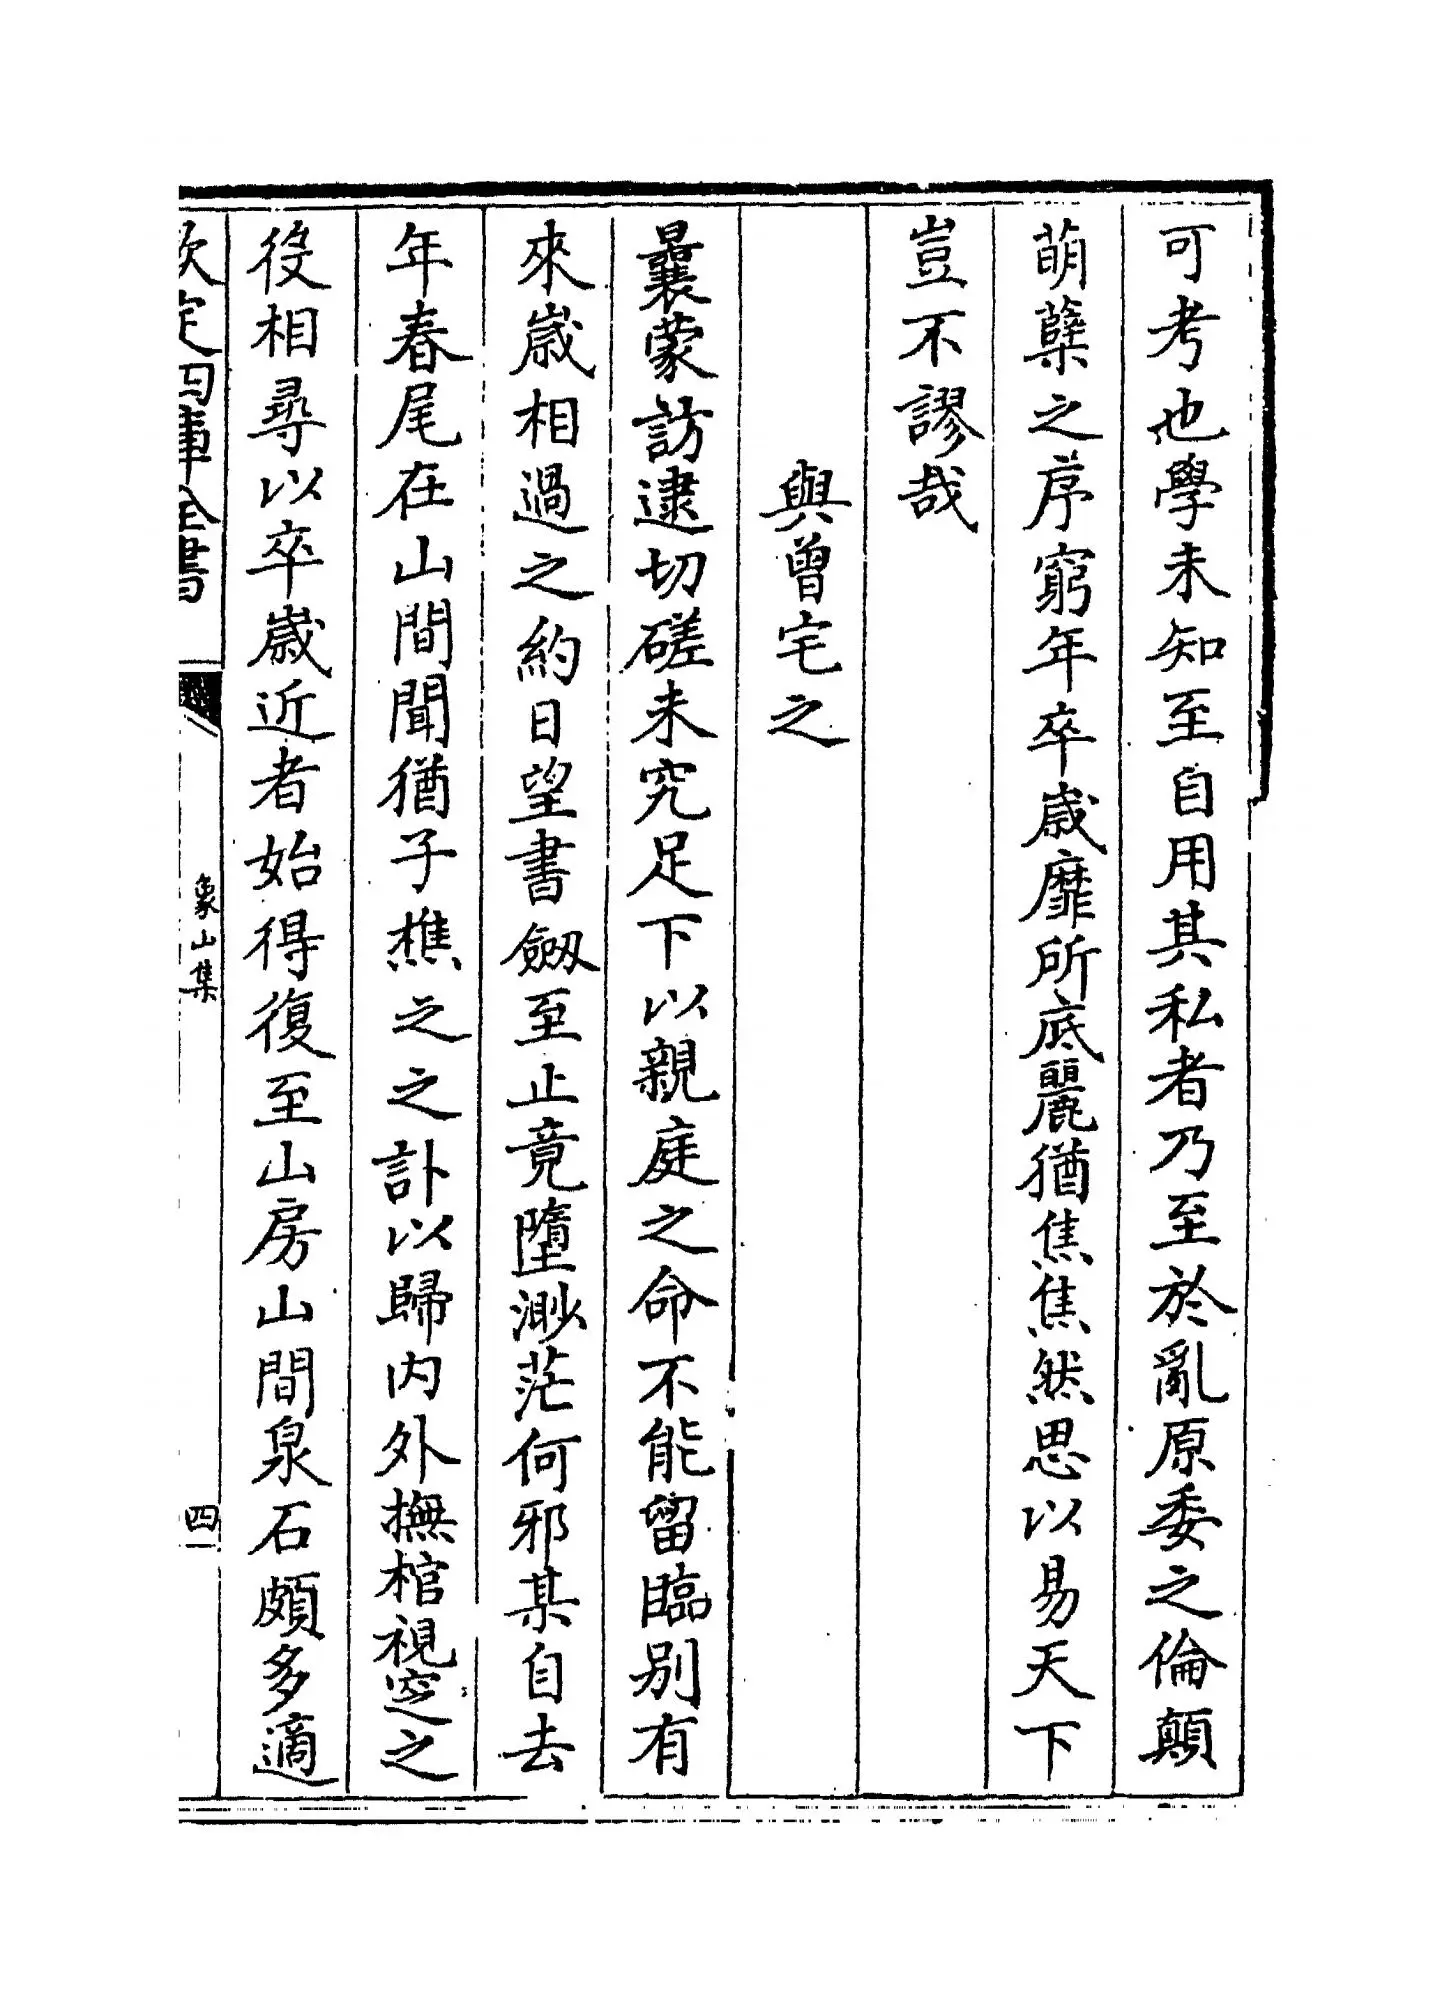 可考也學未知至自用其私者乃至於亂原委之倫顛
萌蘖之序窮年卒歲靡所底麗猶焦焦然思以易天下
豈不謬哉
與曾宅之
曩蒙訪逮切磋未究足下以親庭之命不能留臨別有
來歲相過之約日望書劔至止竟墮渺茫何邪某自去
年春尾在山間聞猶子槱之之訃以歸內外撫棺視窆之
役相尋以卒歲近者始得復至山房山間泉石頗多適
欽定四庫全書
象山集
四